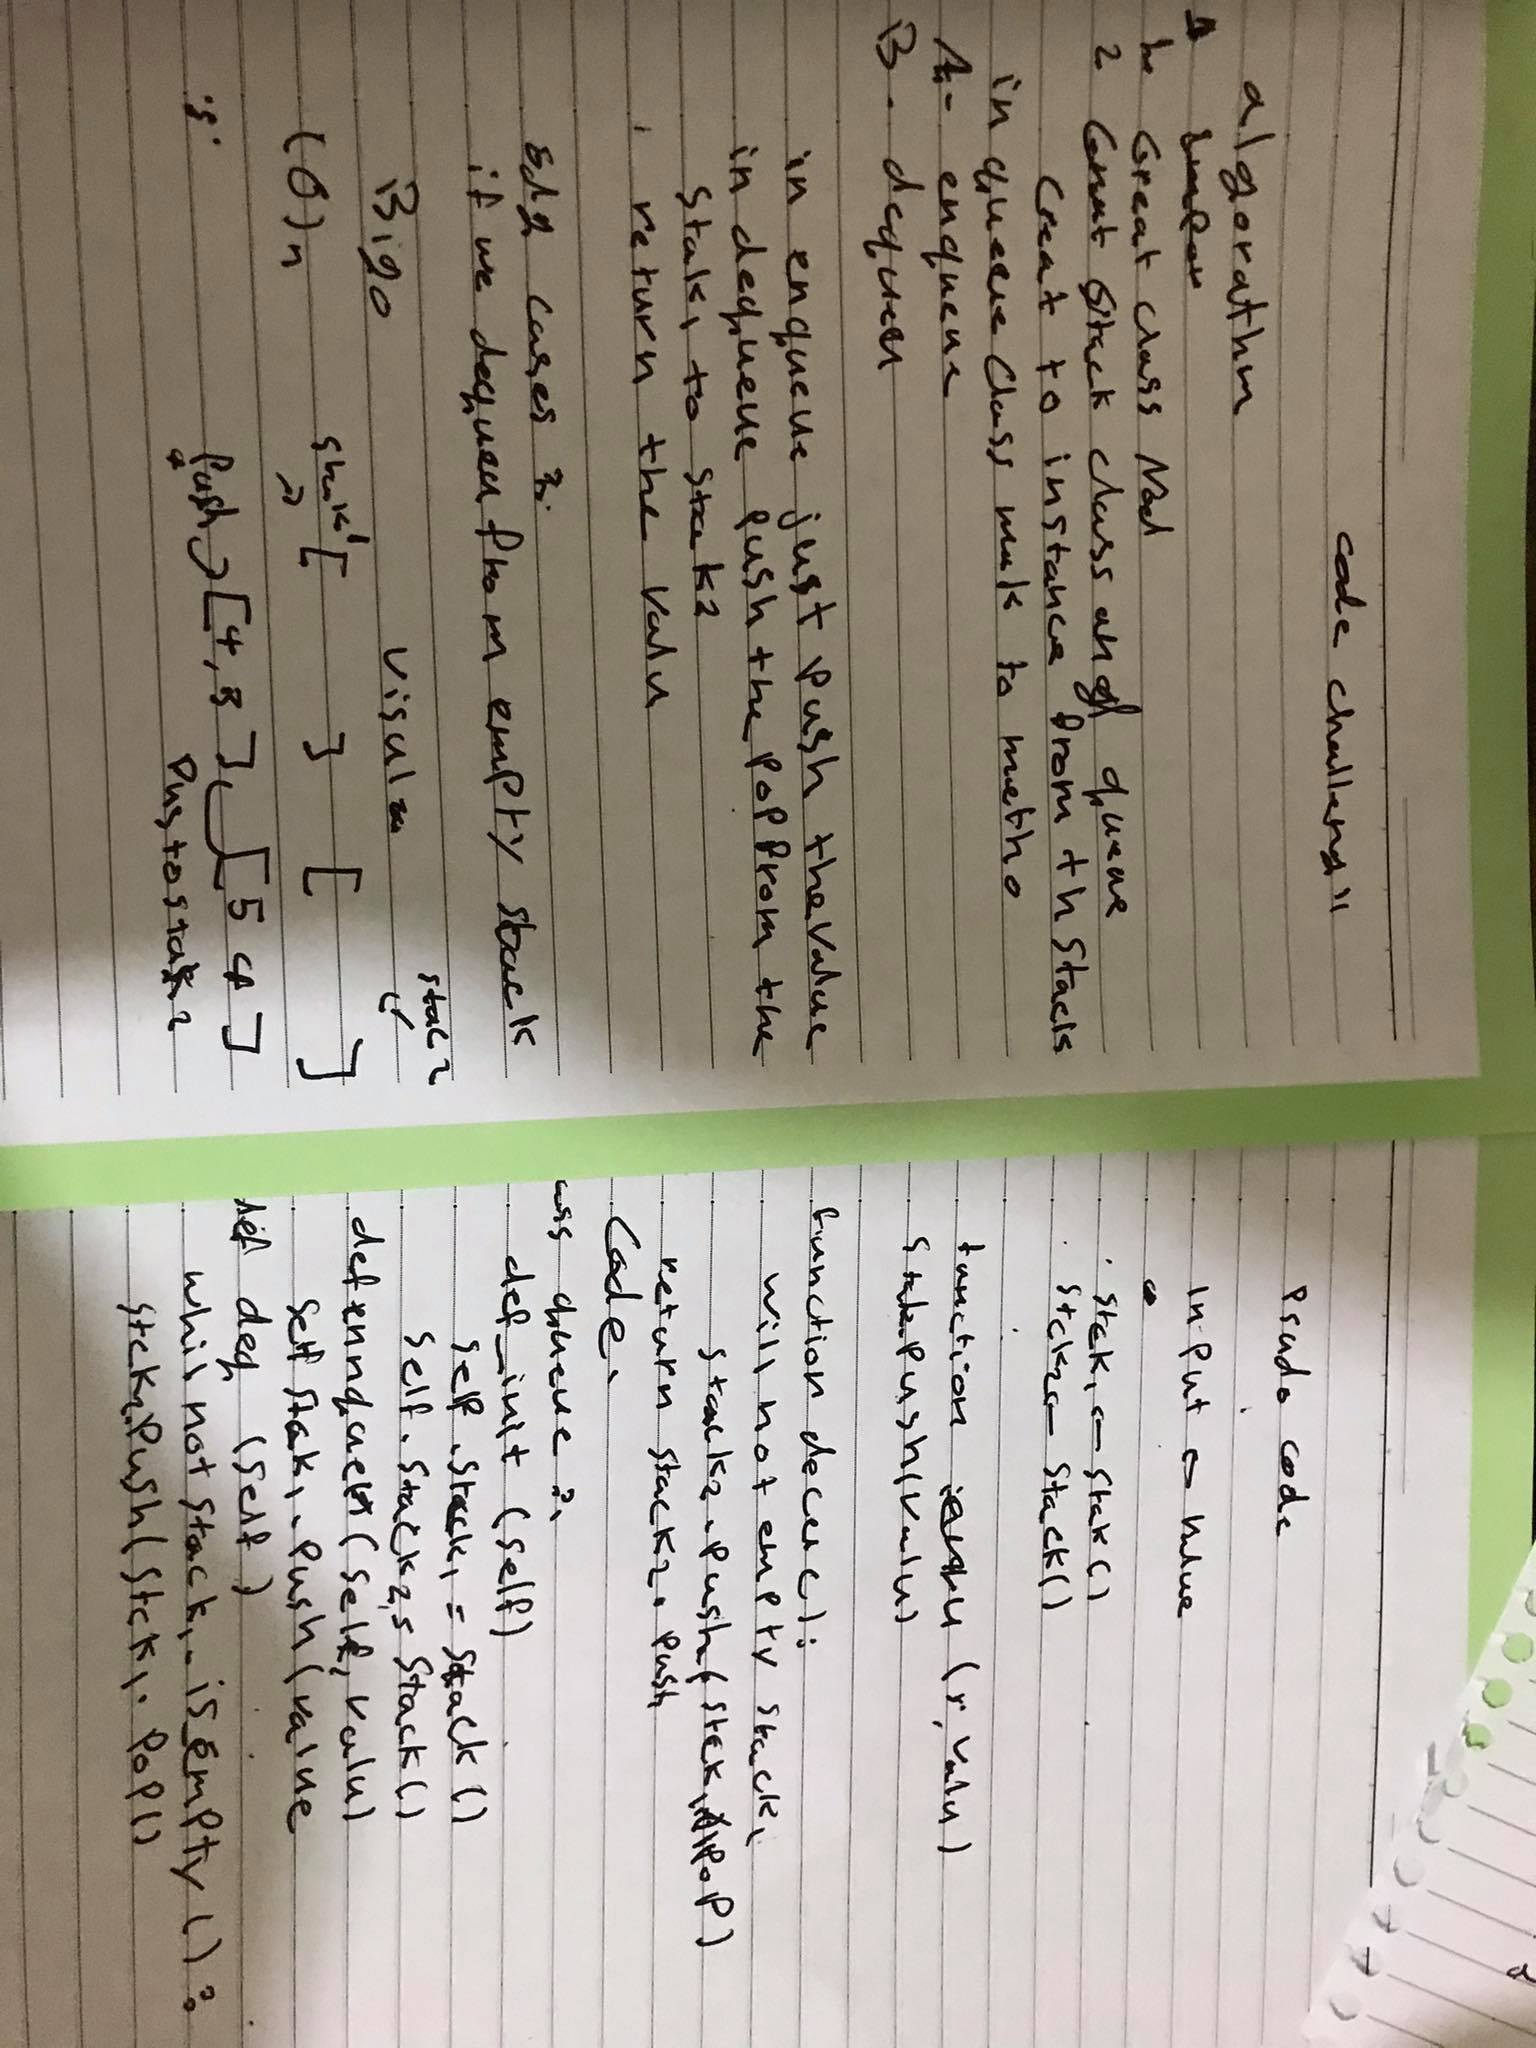 code challeng 11
algorathm
1- Creat class Nod
2 Creat Stack class and queue
Creat to instance from th stack
in queue class mak to metho
A- enqueue
B- dequeu
in enqueue just push the value
in dequeue push the pop from the
stak1 to stack2
return the valu
Edg cases :.
if we dequeu from empty stack
Big O
(O)n
Visulz
stac2
stak1 [ ] [ ]
Push [4, 5], [5 4]
Pus to stak2
Psudo code
InPut <- value
stek1 <- stak()
stck2 <- stack()
function (r, valu)
stak.push(valu)
function decue():
will not empty stack1
stack2.push(stek1.pop)
return stack2.push
Code.
ass queue :.
def_init (self)
self.stack1 = stack()
self.stack2 = stack()
def ennqueu (self, valu)
self stak1.push(value
def deq (self)
whil not stack1.isEmpty() :
stck2.push(stck1.pop()